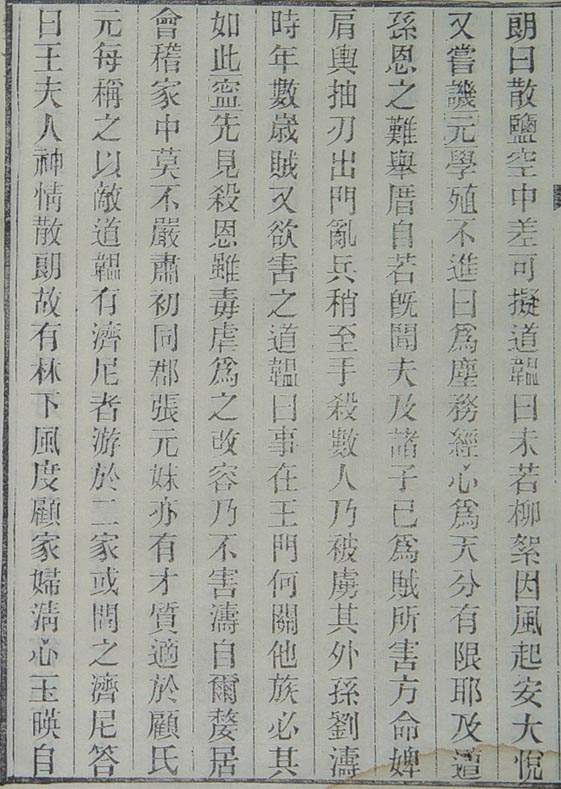 朗曰散鹽空中差可擬道韞曰未若柳絮因風起安大悅
又嘗譏元學殖不進曰爲塵務經心爲天分有限耶及遭
孫恩之難舉厝自若旣聞夫及諸子已爲賊所害方命婢
肩輿抽刃出門亂兵稍至手殺數人乃被虜其外孫劉濤
時年數歲賊又欲害之道韞曰事在王門何關他族必其
如此寍先見殺恩雖毒虐爲之改容乃不害濤自爾嫠居
會稽家中莫不嚴肅初同郡張元妹亦有才質適於顧氏
元每稱之以敵道韞有濟尼者游於二家或問之濟尼答
曰王夫人神情散朗故有林下風度顧家婦清心玉暎自